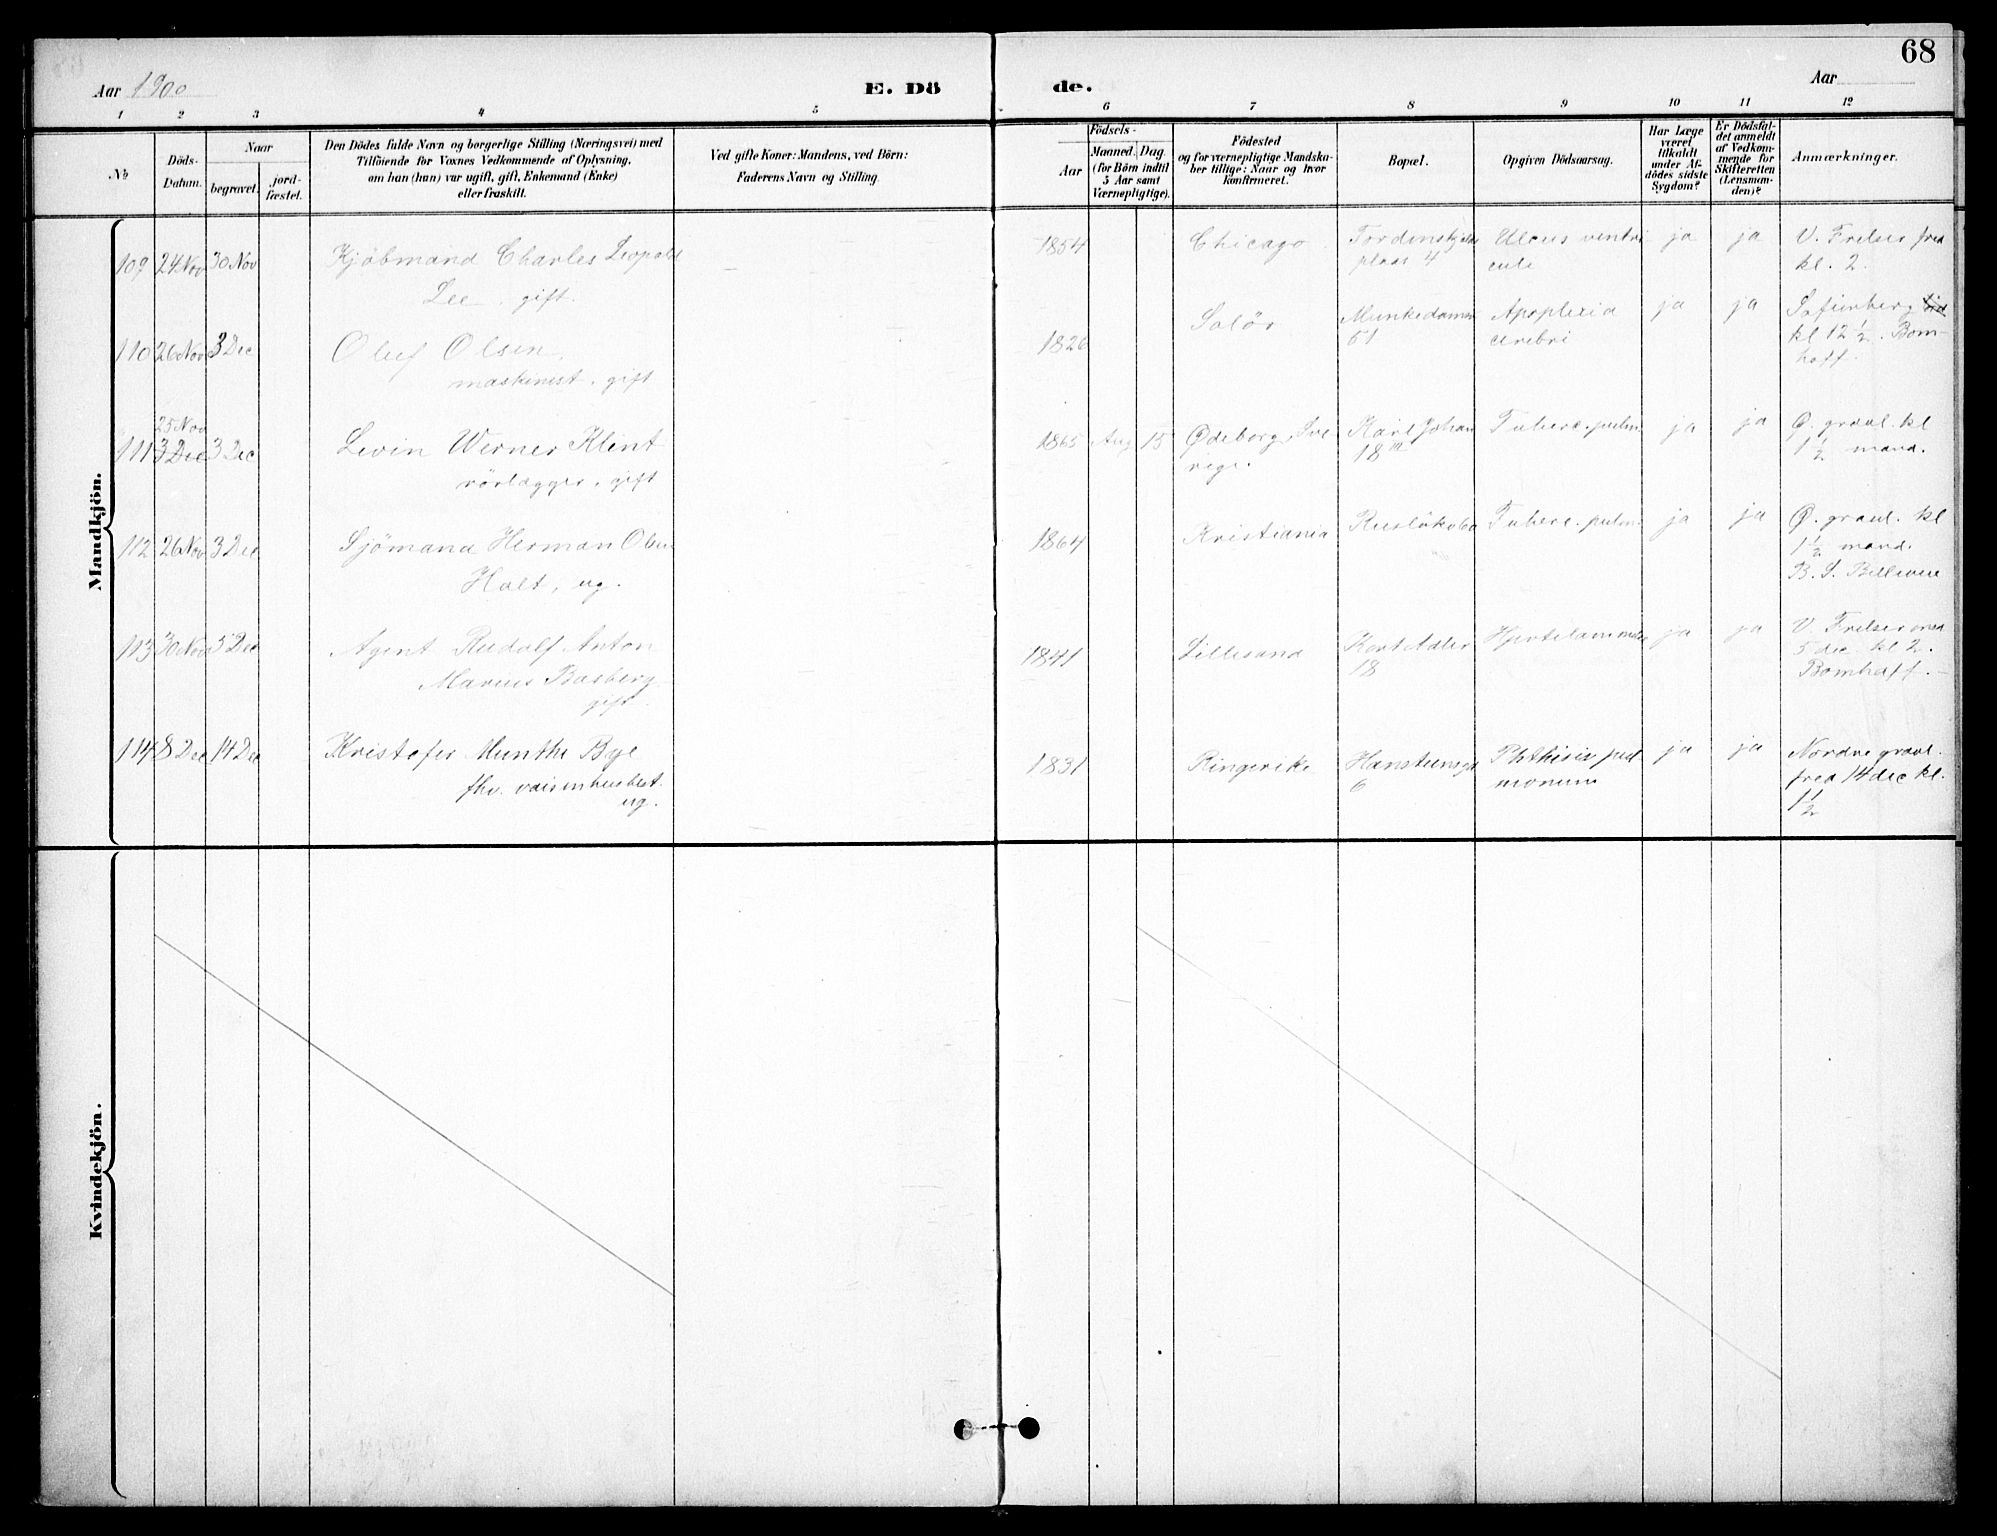 68
Aar 1900
E. Dö
de.
Aar
1 2 3 4 5 6 7 8 9 10 11 12
No
Döds-
Datum.
Naar
begravet.
jord-
fæstet.
Den Dödes fulde Navn og borgerlige Stilling (Næringsvei) med
Tilföiende for Voxnes Vedkommende af Oplysning,
om han (hun) var ugift, gift, Enkemand (Enke)
eller fraskilt.
Ved gifte Koner: Mandens, ved Börn:
Faderens Navn og Stilling.
Födsels-
Aar
Maaned. Dag.
(for Börn indtil
5 Aar samt
Værnepligtige).
Födested
og for værnepligtige Mandska-
ber tillige: Naar og hvor
konfirmeret.
Bopæl.
Opgiven Dödsaarsag.
Har Læge
været
tilkaldt
under Af-
dödes sidste
Sygdom?
Er Dödsfal-
det anmeldt
af Vedkom-
mende for
Skifteretten
(Lensman-
den)?
Anmærkninger.
Mandkjön.
109 24 Nov 30 Nov Kjöbmand Charles Leopold
Lee, gift.
1854 Chicago Tordenskjolds
plads 4
Ulcus ventri
culi
ja ja V. Frelser fred
kl. 2.
110 26 Nov 3 Dec Oluf Olsen,
maskinist, gift
1826 Solör Munkedamsv
51
Apoplexia
cerebri
ja ja
kl 12 ½. Bom-
hoff.
25 Nov
111 3 Dec 3 Dec Levin Werner Klint
rörlægger, gift
1865 Aug 15 Ødeborg, Sve-
rige.
Karl Johan
18
Tuberc. pulm.
ja ja Ø. gravl. kl
1 ½ mand.
112 26 Nov 3 Dec Sjömand Herman Olsen
Holt, ug.
1864 Kristiania Ruslökv Tuberc. pulm.
ja ja Ø. gravl. kl
1 ½ mand.
B. S.
113 30 Nov 5 Dec Agent Rudolf Anton
Marius Basberg
gift.
1841 Lillesand Kort Adler
18
ja ja V. Frelser ons
5 dec kl 2.
Bomhoff.
114 8 Dec 14 Dec Kristofer Munthe Bye
fhv. vaisenhusbest.
ug.
1831 Ringerike Hansteensgd
6
Phthisis pul-
monum
ja ja Nordre gravl.
fred 14 dec kl.
1 ½
Kvindekjön.